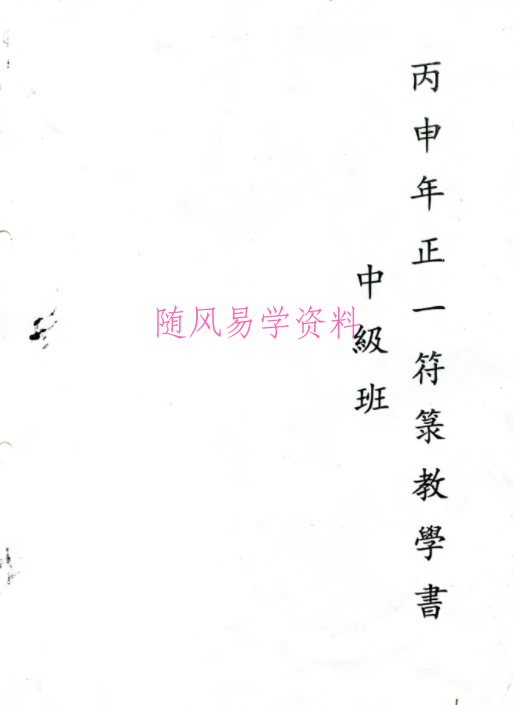 丙申年正一符箓教學書
中級班
随风易学资料